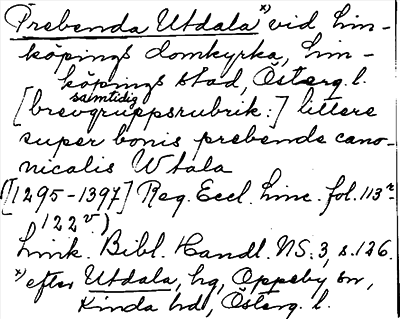 Prebenda Utdala x) vid Lin-
köpings domkyrka, Lin-
köpings stad, Österg. l.
samtidig
[brevgruppsrubrik:] littere
super bonis prebende cano-
nicalis Wtala
([1295-1397] Reg. Eccl. Linc. fol. 113r-
122v.)
Link. Bibl. Handl. NS. 3, s. 126.
x) efter Utdala, hg, Oppeby sn,
Kinda hd, Österg. l.